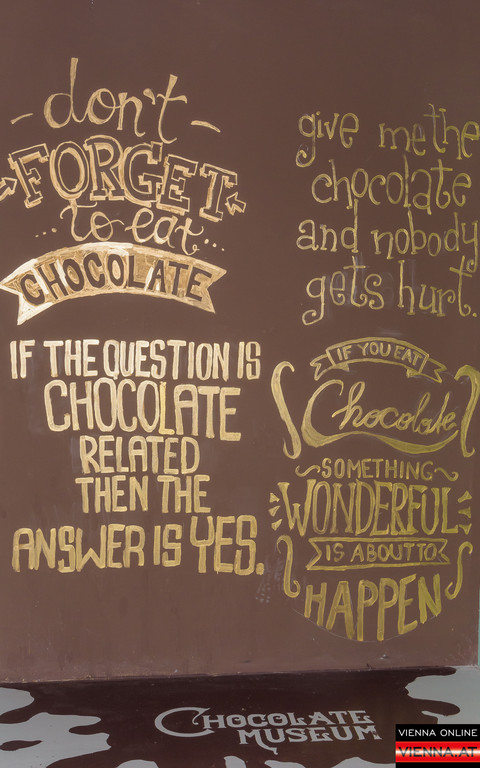 don't
FORGET
to eat...
CHOCOLATE
give me the
chocolate
and nobody
gets hurt.
IF THE QUESTION IS
CHOCOLATE
RELATED
THEN THE
ANSWER IS YES.
IF YOU EAT
Chocolate
SOMETHING
WONDERFUL
IS ABOUT TO
HAPPEN
CHOCOLATE
MUSEUM
VIENNA ONLINE
VIENNA.AT